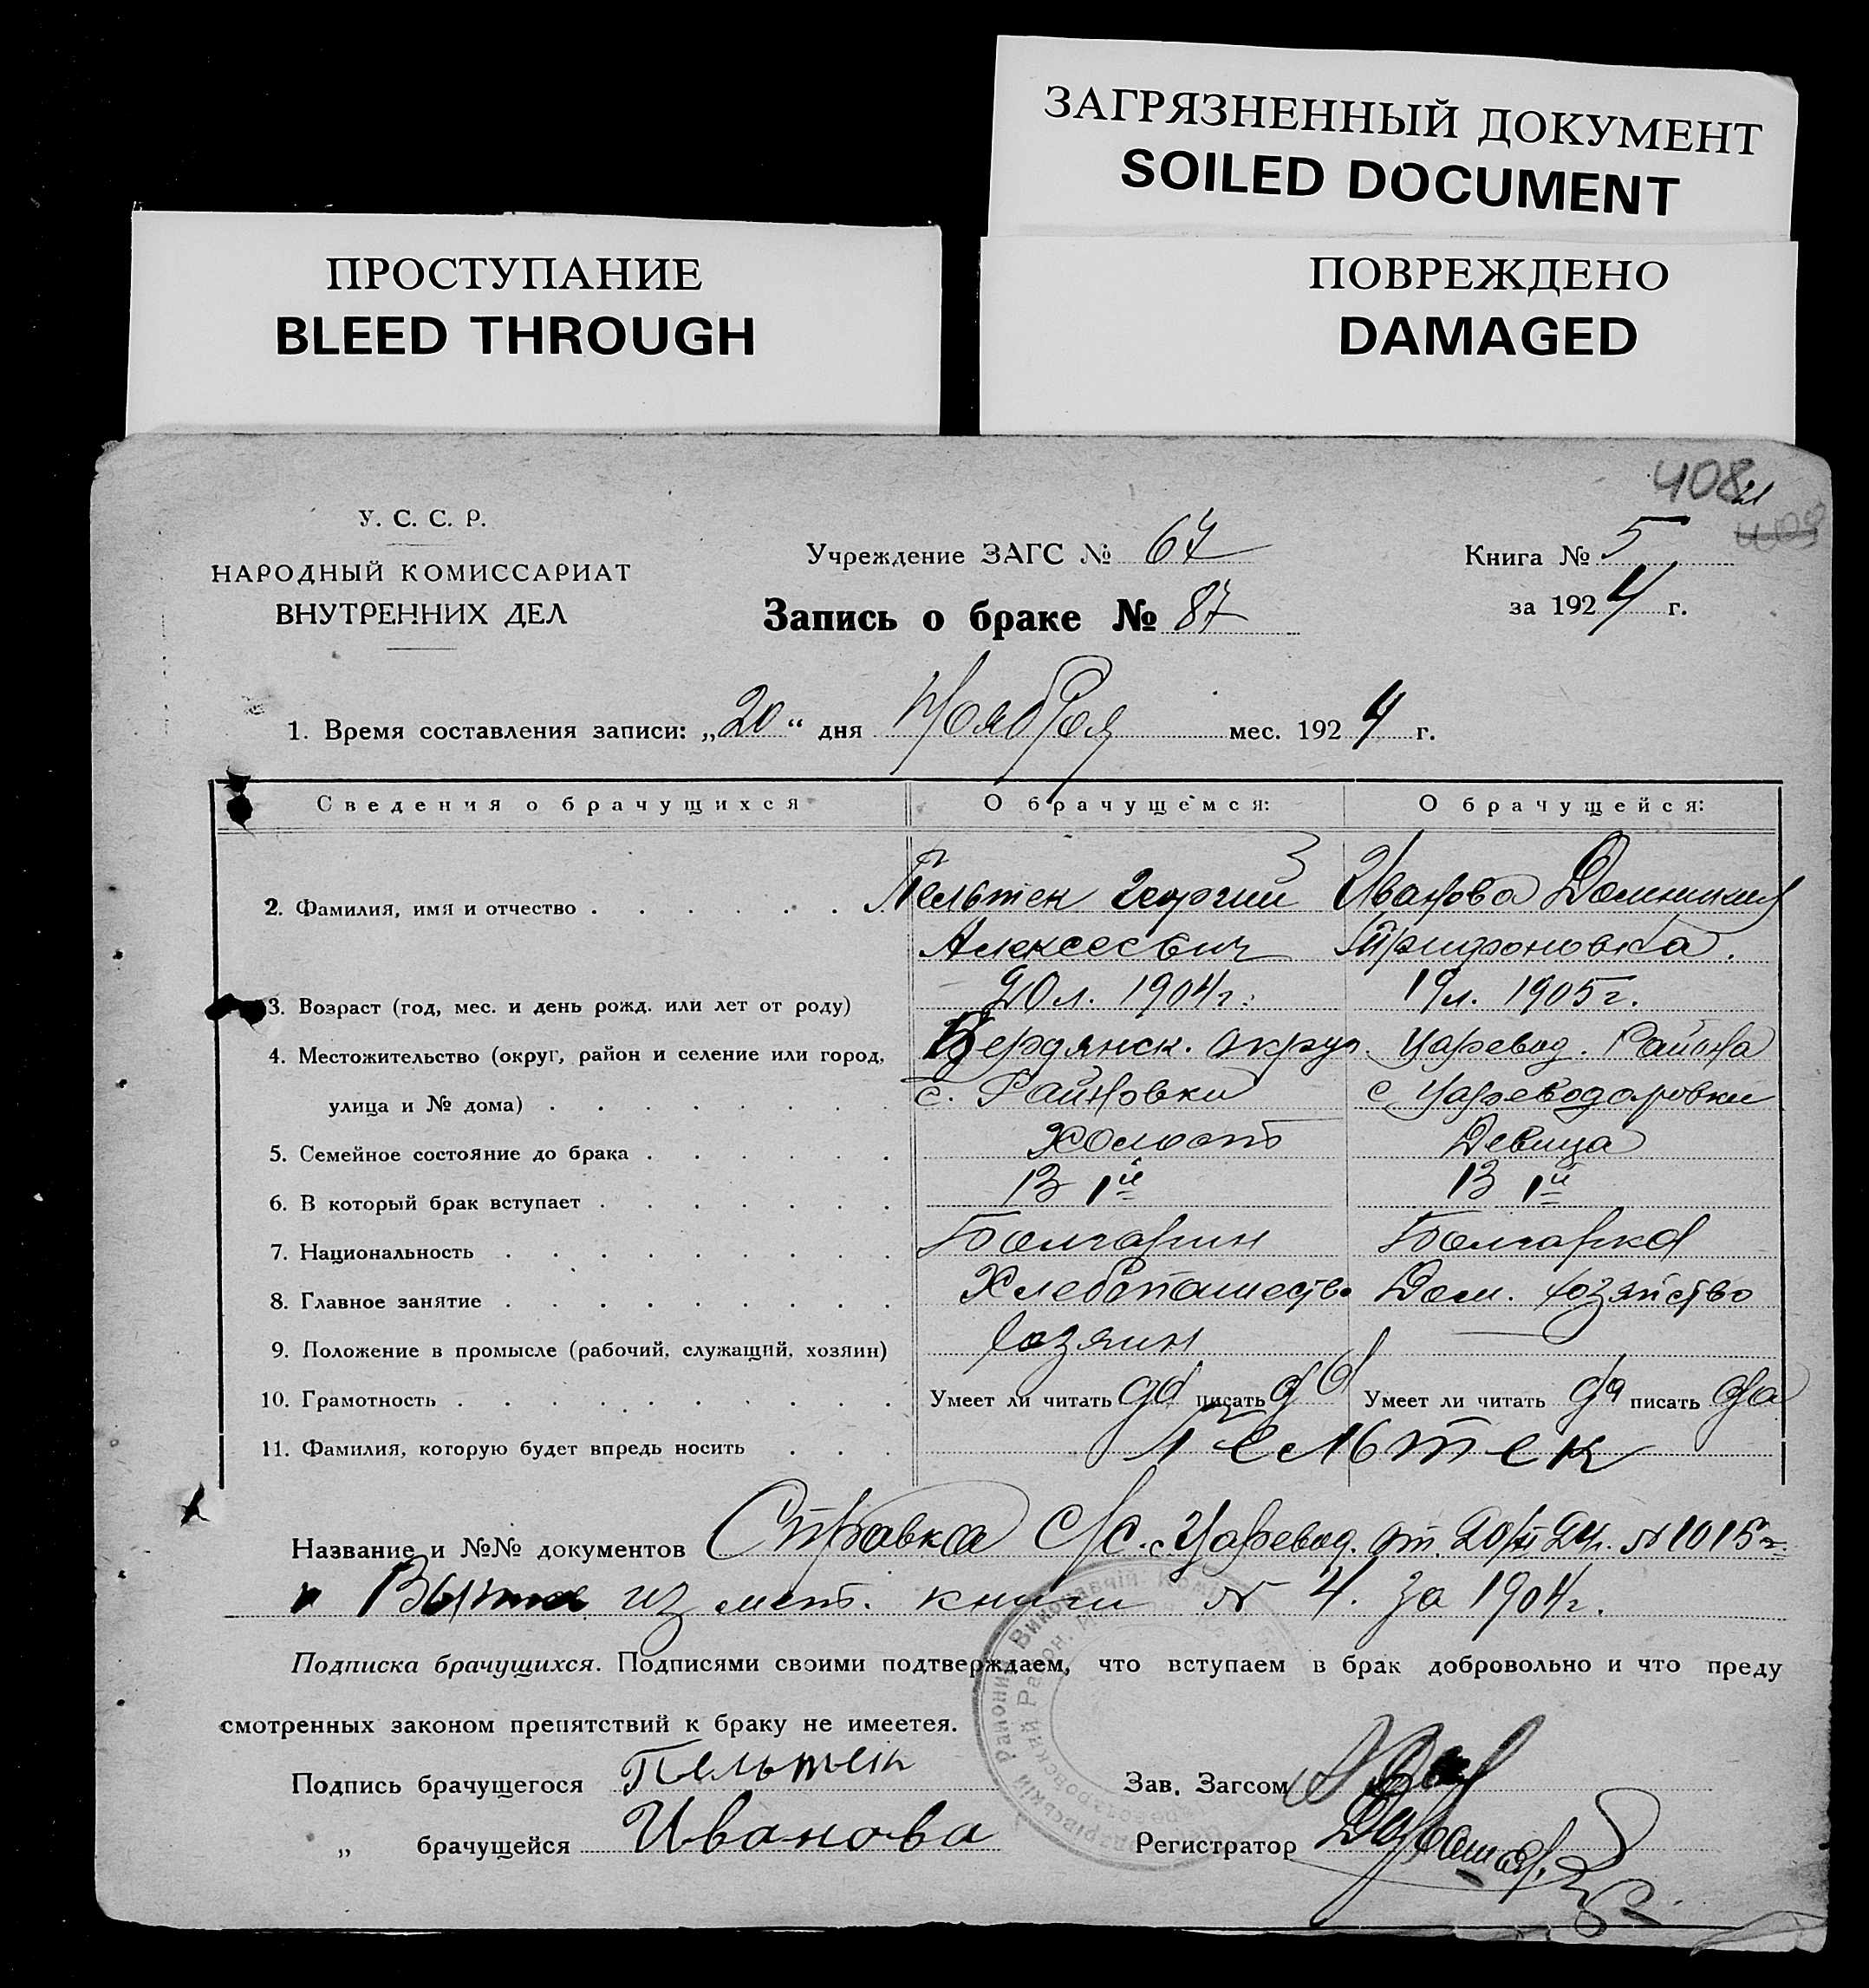 ЗАГРЯЗНЕННЫЙ ДОКУМЕНТ
SOILED DOCUMENT
ПРОСТУПАНИЕ
BLEED THROUGH
ПОВРЕЖДЕНО
DAMAGED
408
У. С. С. Р.
НАРОДНЫЙ КОМИССАРИАТ
ВНУТРЕННИХ ДЕЛ
Учреждение ЗАГС № 67
Запись о браке № 87
Книга № 5
за 1924 г.
1. Время составления записи: „20“ дня Ноября мес. 1924 г.
Сведения о брачущихся О брачущемся: О брачущейся:
2. Фамилия, имя и отчество Пельтек Георгий Иванова Домникия
Алексеевич Трифоновна.
3. Возраст (год, мес. и день рожд. или лет от роду) 20 л. 1904 г. 19 л. 1905 г.
4. Местожительство (округ, район и селение или город, Бердянск. округ. Царевод. Района
улица и № дома) с. Райновки с Цареводаровки
5. Семейное состояние до брака Холост Девица
6. В который брак вступает В 1й В 1й
7. Национальность Болгарин Болгарка
8. Главное занятие Хлебопашество Дом. хозяйство
9. Положение в промысле (рабочий, служащий, хозяин) хозяин —
10. Грамотность Умеет ли читать да писать да Умеет ли читать да писать да
11. Фамилия, которую будет впредь носить Пельтек
Название и №№ документов Справка С/С. с. Царевод. от 20/XI 24 г. № 1015
и из мет. книги № 4. за 1904 г.
Подписка брачущихся. Подписями своими подтверждаем, что вступаем в брак добровольно и что преду
смотренных законом препятствий к браку не имеетея.
Подпись брачущегося Пельтек Зав. Загсом
„ брачущейся Иванова Регистратор